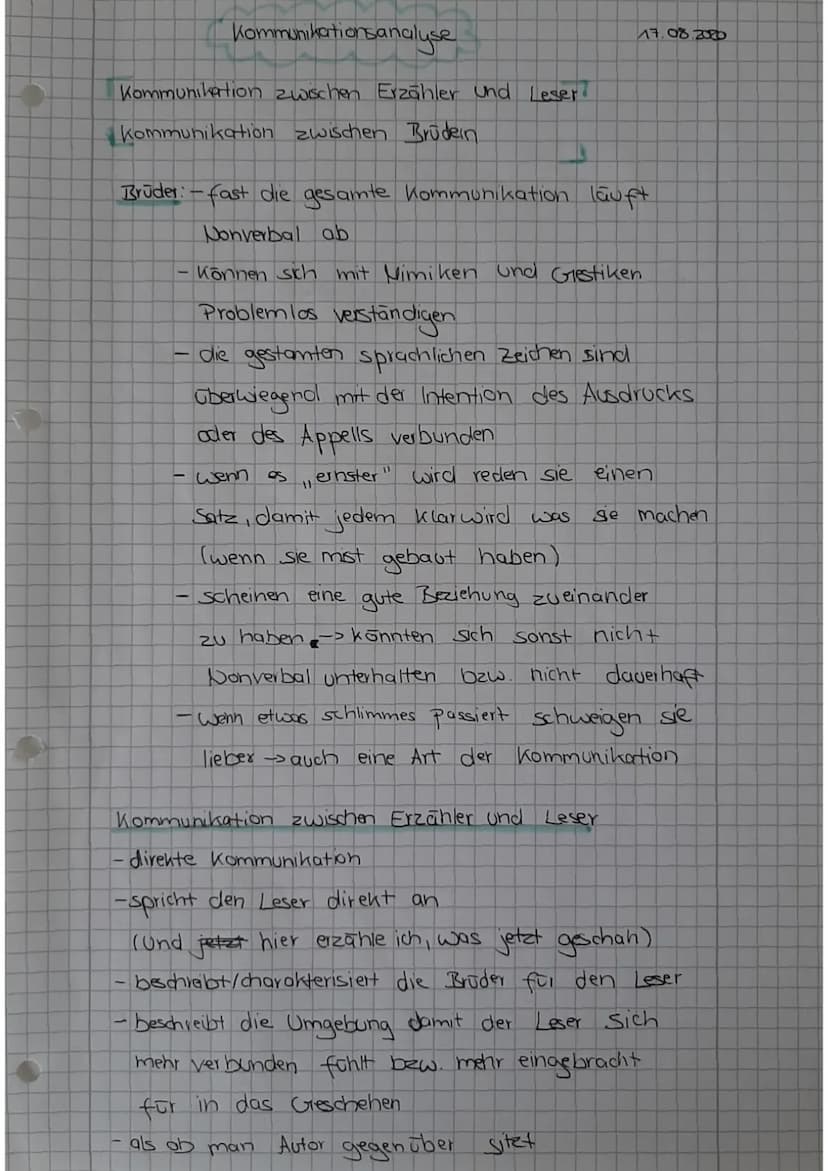 Kommunikationsanalyse 17.08.2020
Kommunikation zwischen Erzähler und Leser
Kommunikation zwischen Brüdern
Brüder: - fast die gesamte Kommunikation läuft
Nonverbal ab
- können sich mit Mimiken und Gestiken
Problemlos verständigen
- die gestamten sprachlichen Zeichen sind
überwiegend mit der Intention des Ausdrucks
oder des Appells verbunden
- wenn es „ernster" wird reden sie einen
Satz, damit jedem klar wird was sie machen
(wenn sie mist gebaut haben)
- scheinen eine gute Beziehung zueinander
zu haben -> könnten sich sonst nicht
Nonverbal unterhalten bzw. nicht dauerhaft
- wenn etwas schlimmes passiert schweigen sie
lieber -> auch eine Art der Kommunikation
Kommunikation zwischen Erzähler und Leser
- direkte Kommunikation
- spricht den Leser direkt an
(Und jetzt hier erzähle ich, was jetzt geschah)
- beschriebt/charakterisiert die Brüder für den Leser
- beschreibt die Umgebung damit der Leser sich
mehr verbunden fühlt bzw. mehr eingebracht
für in das Geschehen
- als ob man Autor gegenüber sitzt